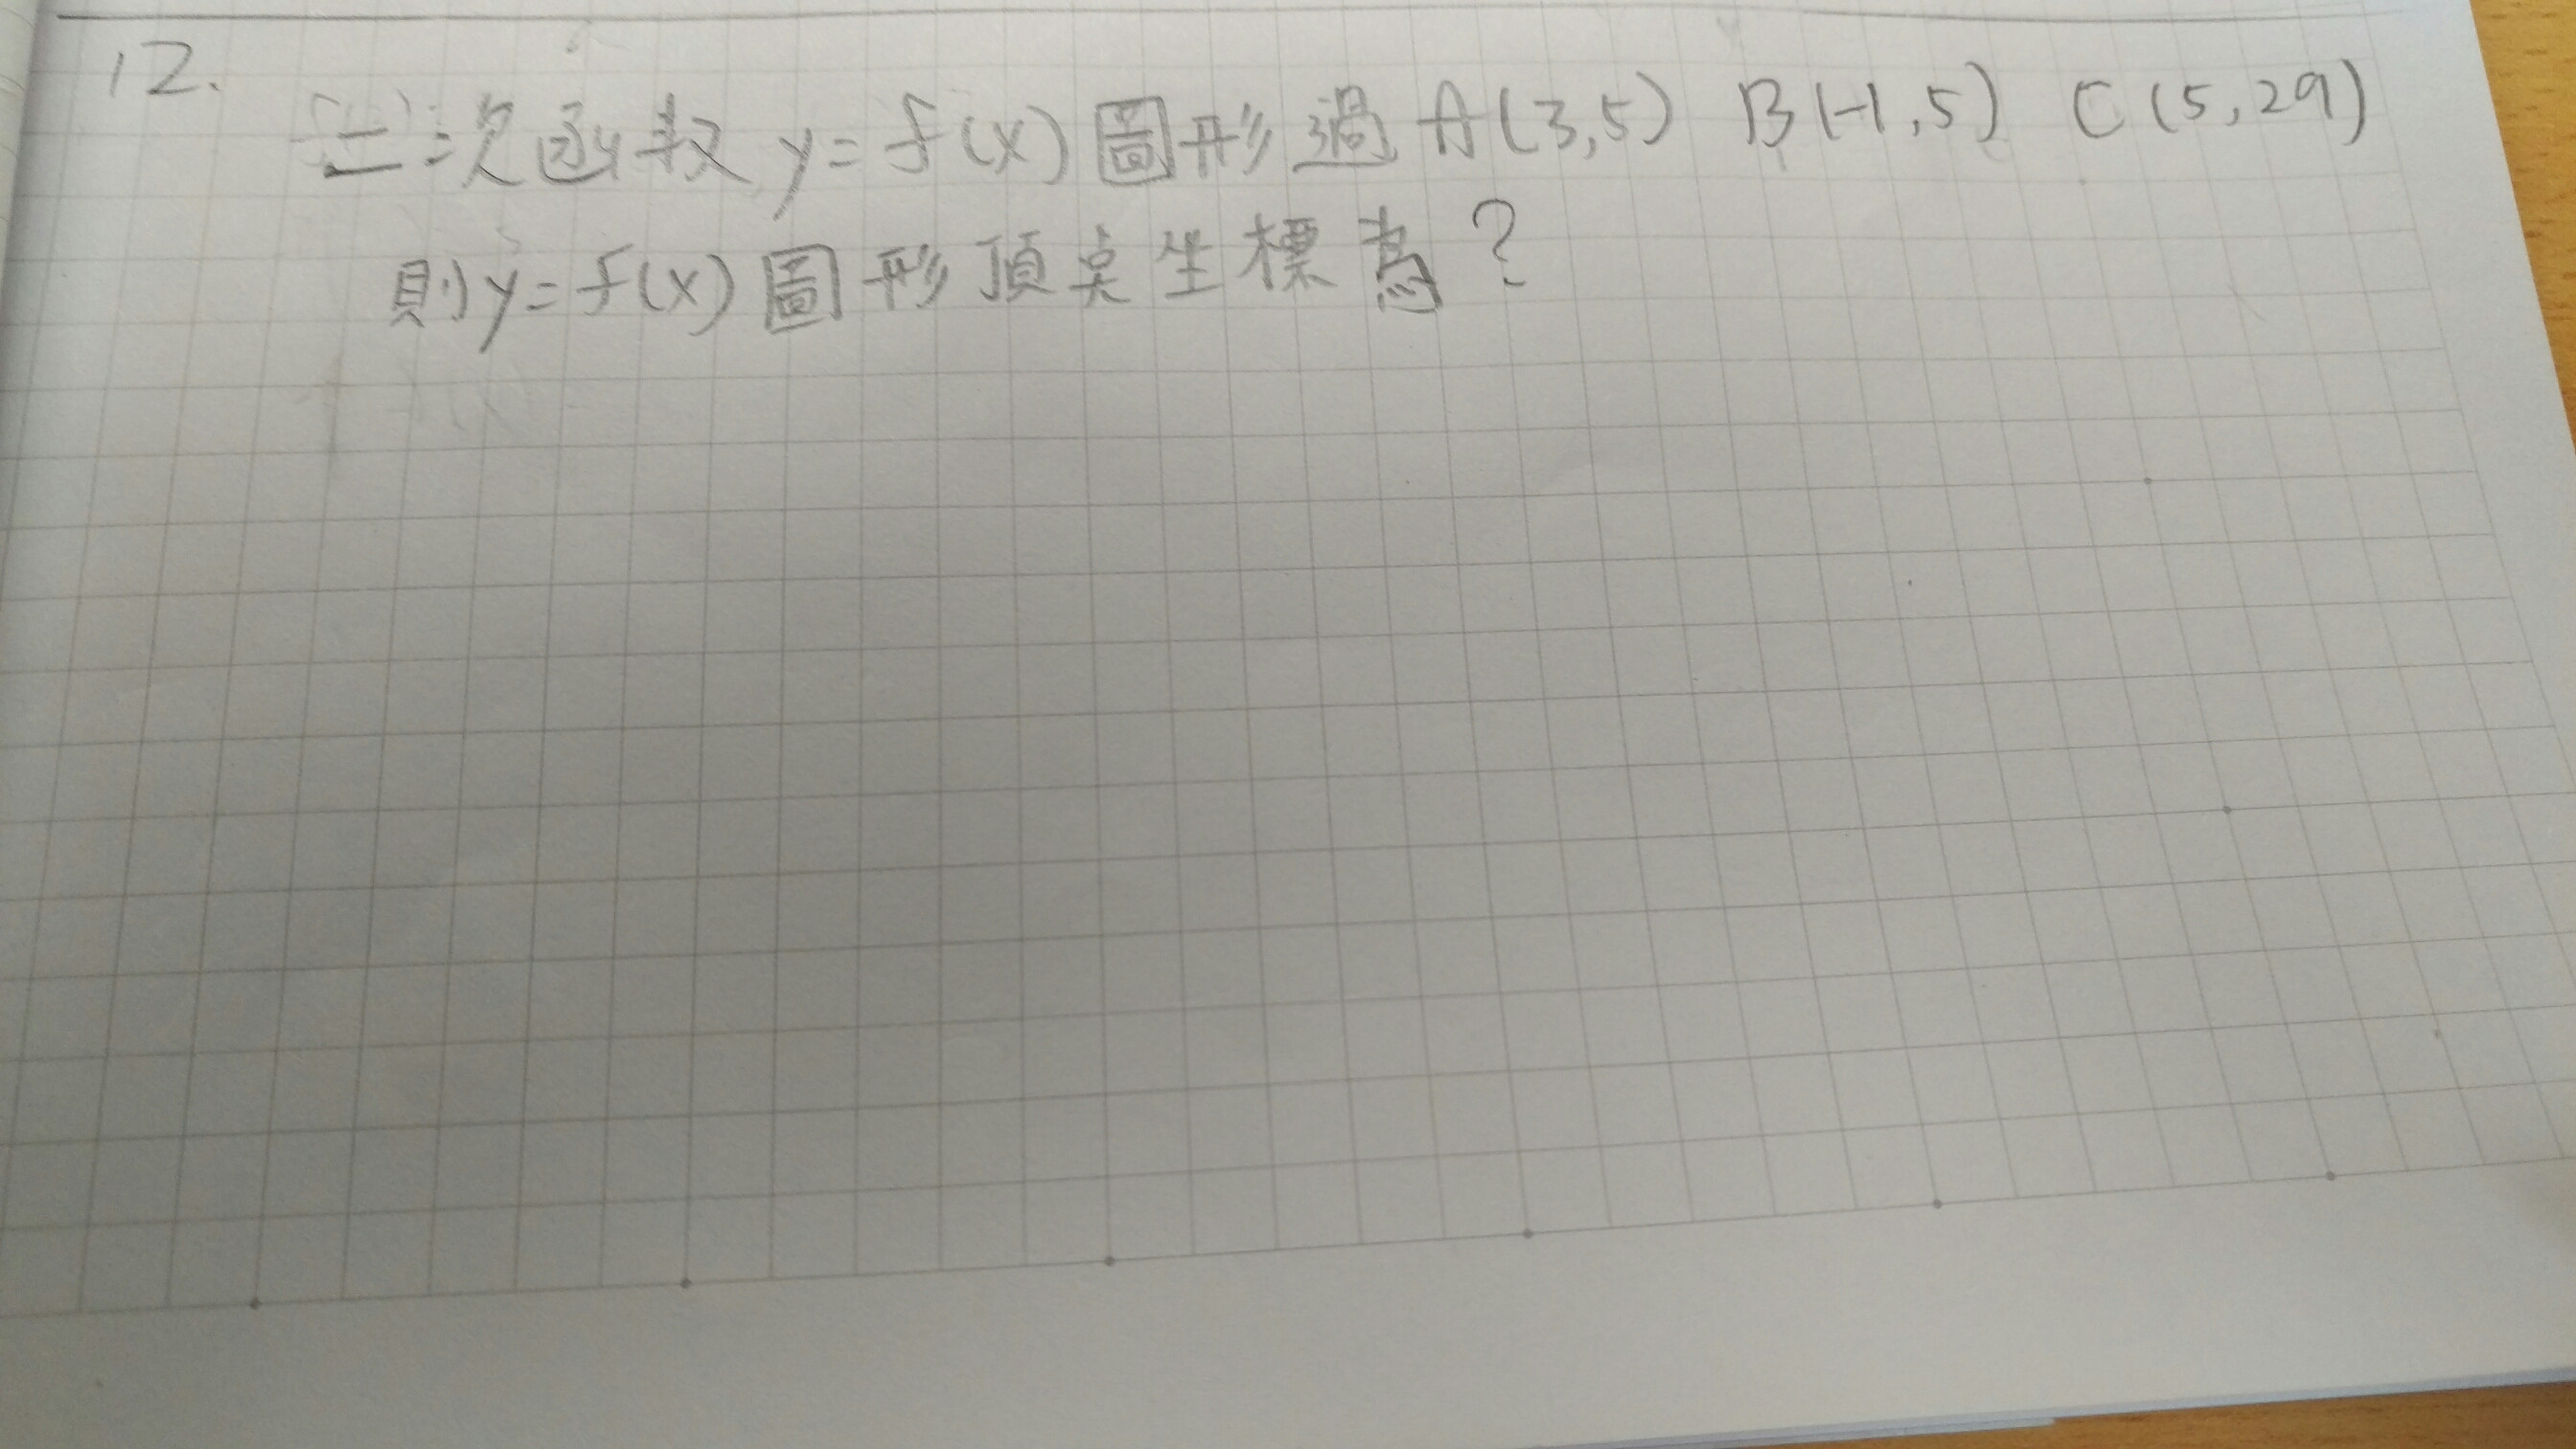 12.
二次函數 y=f(x) 圖形過 A(3,5) B(-1,5) C(5,29)
則 y=f(x) 圖形頂点坐標為?